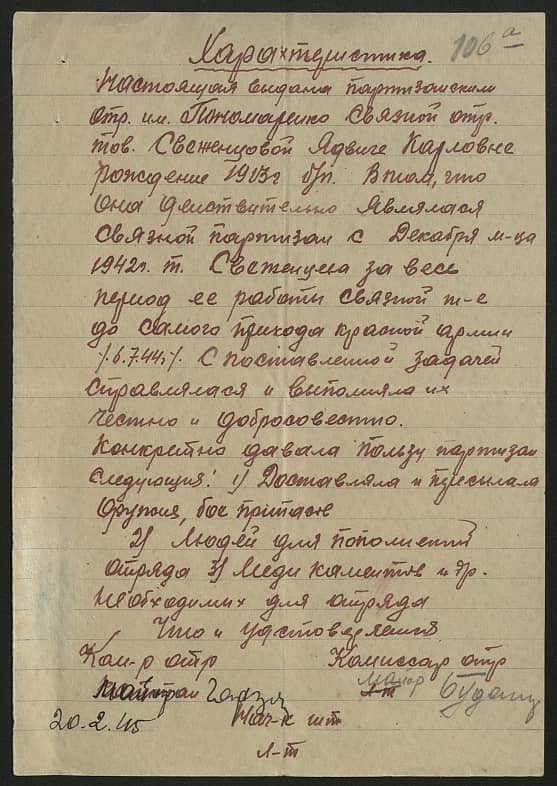 106 а
Характеристика.
Настоящая выдана партизанским
отр. им. Пономаренко связной отр.
тов. Свеженцовой Ядвиге Карловне
рождение 1913г б/п. В том, что
она действительно являлася
связной партизан с Декабря м-ца
1942г. т. Свеженцева за весь
период ее работы связной т-е
до самого прихода красной армии
/.6.7.44г./. С поставленной задачей
справлялася и выполняла их
честно и добросовестно.
Конкретно давала пользу партизан
следующия: 1) Доставляла и пересылала
Оружия, бое припасы
2) Людей для пополнений
отряда 3) Меди каментов и др.
необходимых для отряда
Что и удостоверяет.
Ком-р отр Комиссар отр
майор
20.2.45 Нач-к шт
л-т